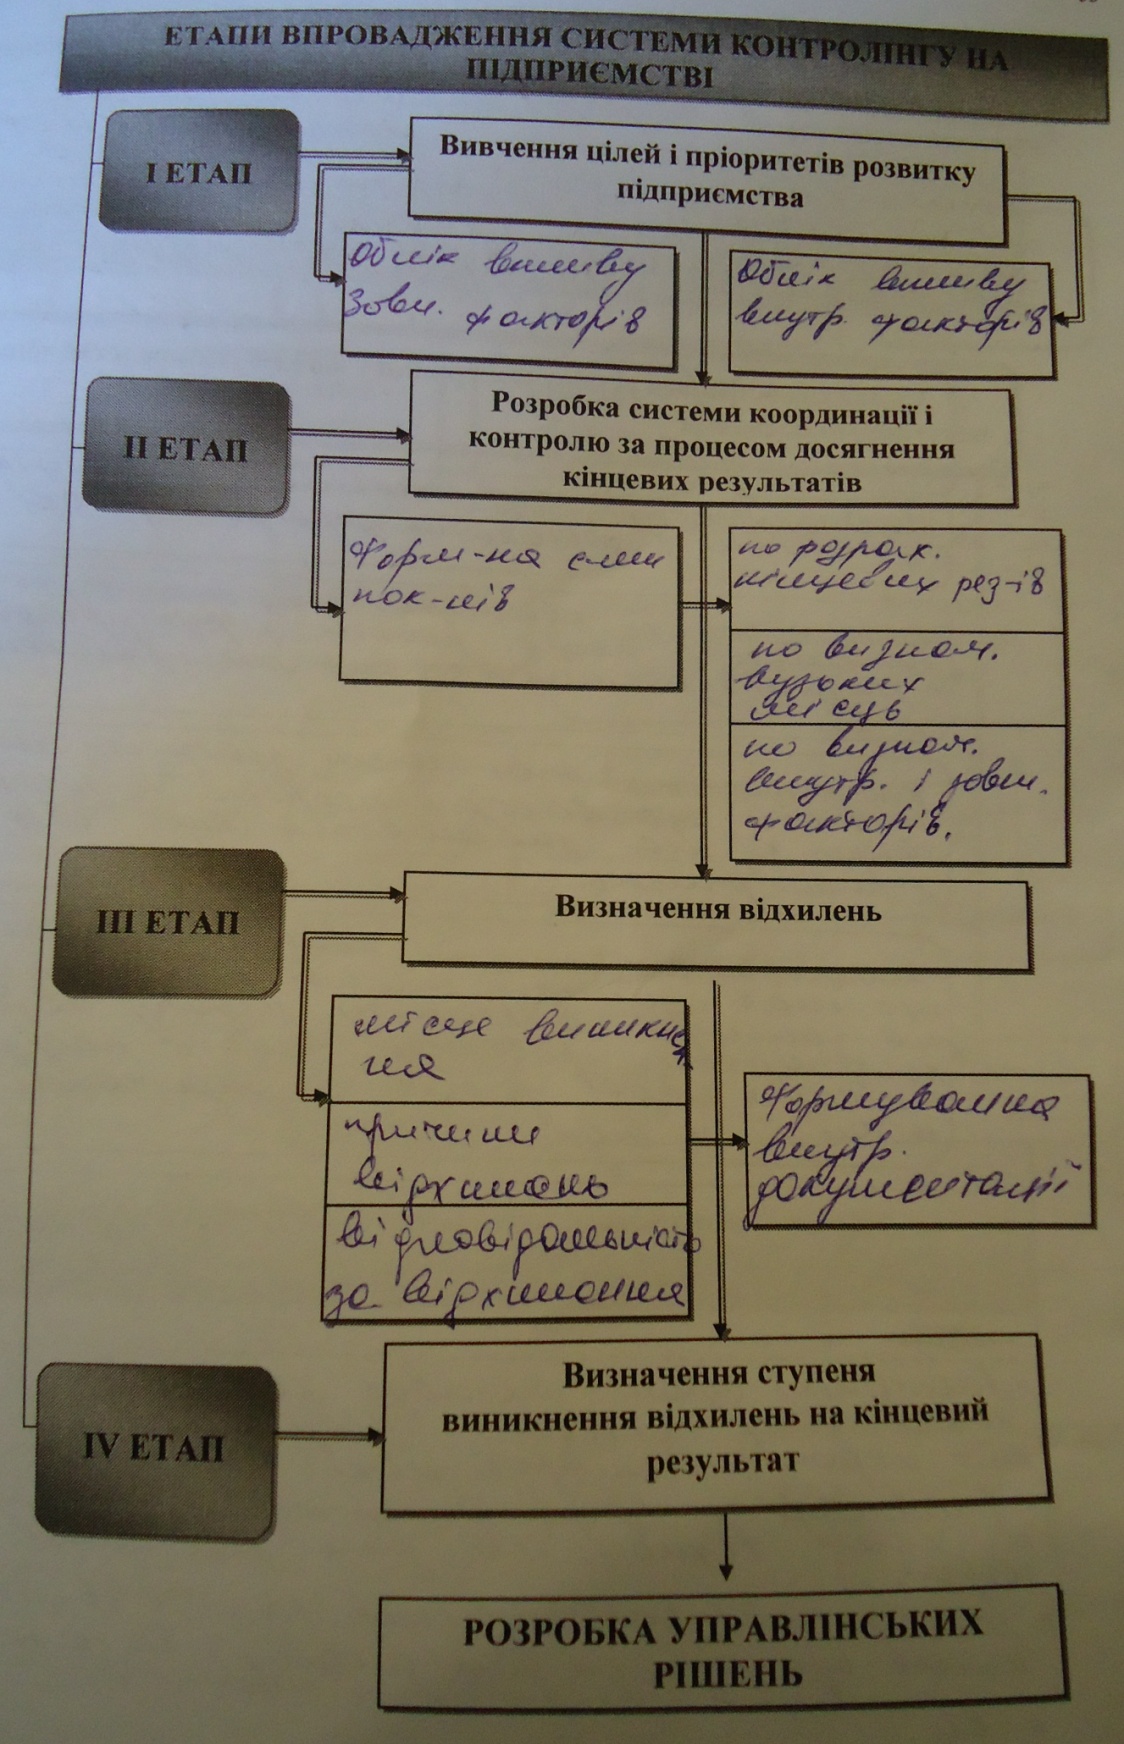 ЕТАПИ ВПРОВАДЖЕННЯ СИСТЕМИ КОНТРОЛІНГУ НА
ПІДПРИЄМСТВІ
І ЕТАП
Вивчення цілей і пріоритетів розвитку
підприємства
Облік впливу
Зовн. факторів
Облік впливу
внутр. факторів
ІІ ЕТАП
Розробка системи координації і
контролю за процесом досягнення
кінцевих результатів
Форм-ня
пок-ків
по розрах.
кінцевих рез-ів
по визнач.
вузьких
місць
по визнач.
внутр. і зовн.
факторів.
ІІІ ЕТАП
Визначення відхилень
місце виникнен
ня
причини
відхилень
відповідальність
за відхилення
Формування
внутр.
документації
IV ЕТАП
Визначення ступеня
виникнення відхилень на кінцевий
результат
РОЗРОБКА УПРАВЛІНСЬКИХ
РІШЕНЬ